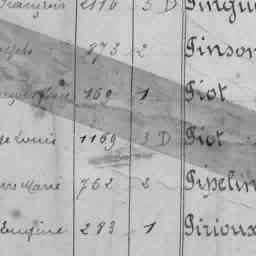 François 2116 3 D Pingu
Joseph 873 2 Pinson
769 1 Piot
Louis 1169 3 D Piot
Marie 762 2 Pipelin
Eugène 293 1 Pirioux